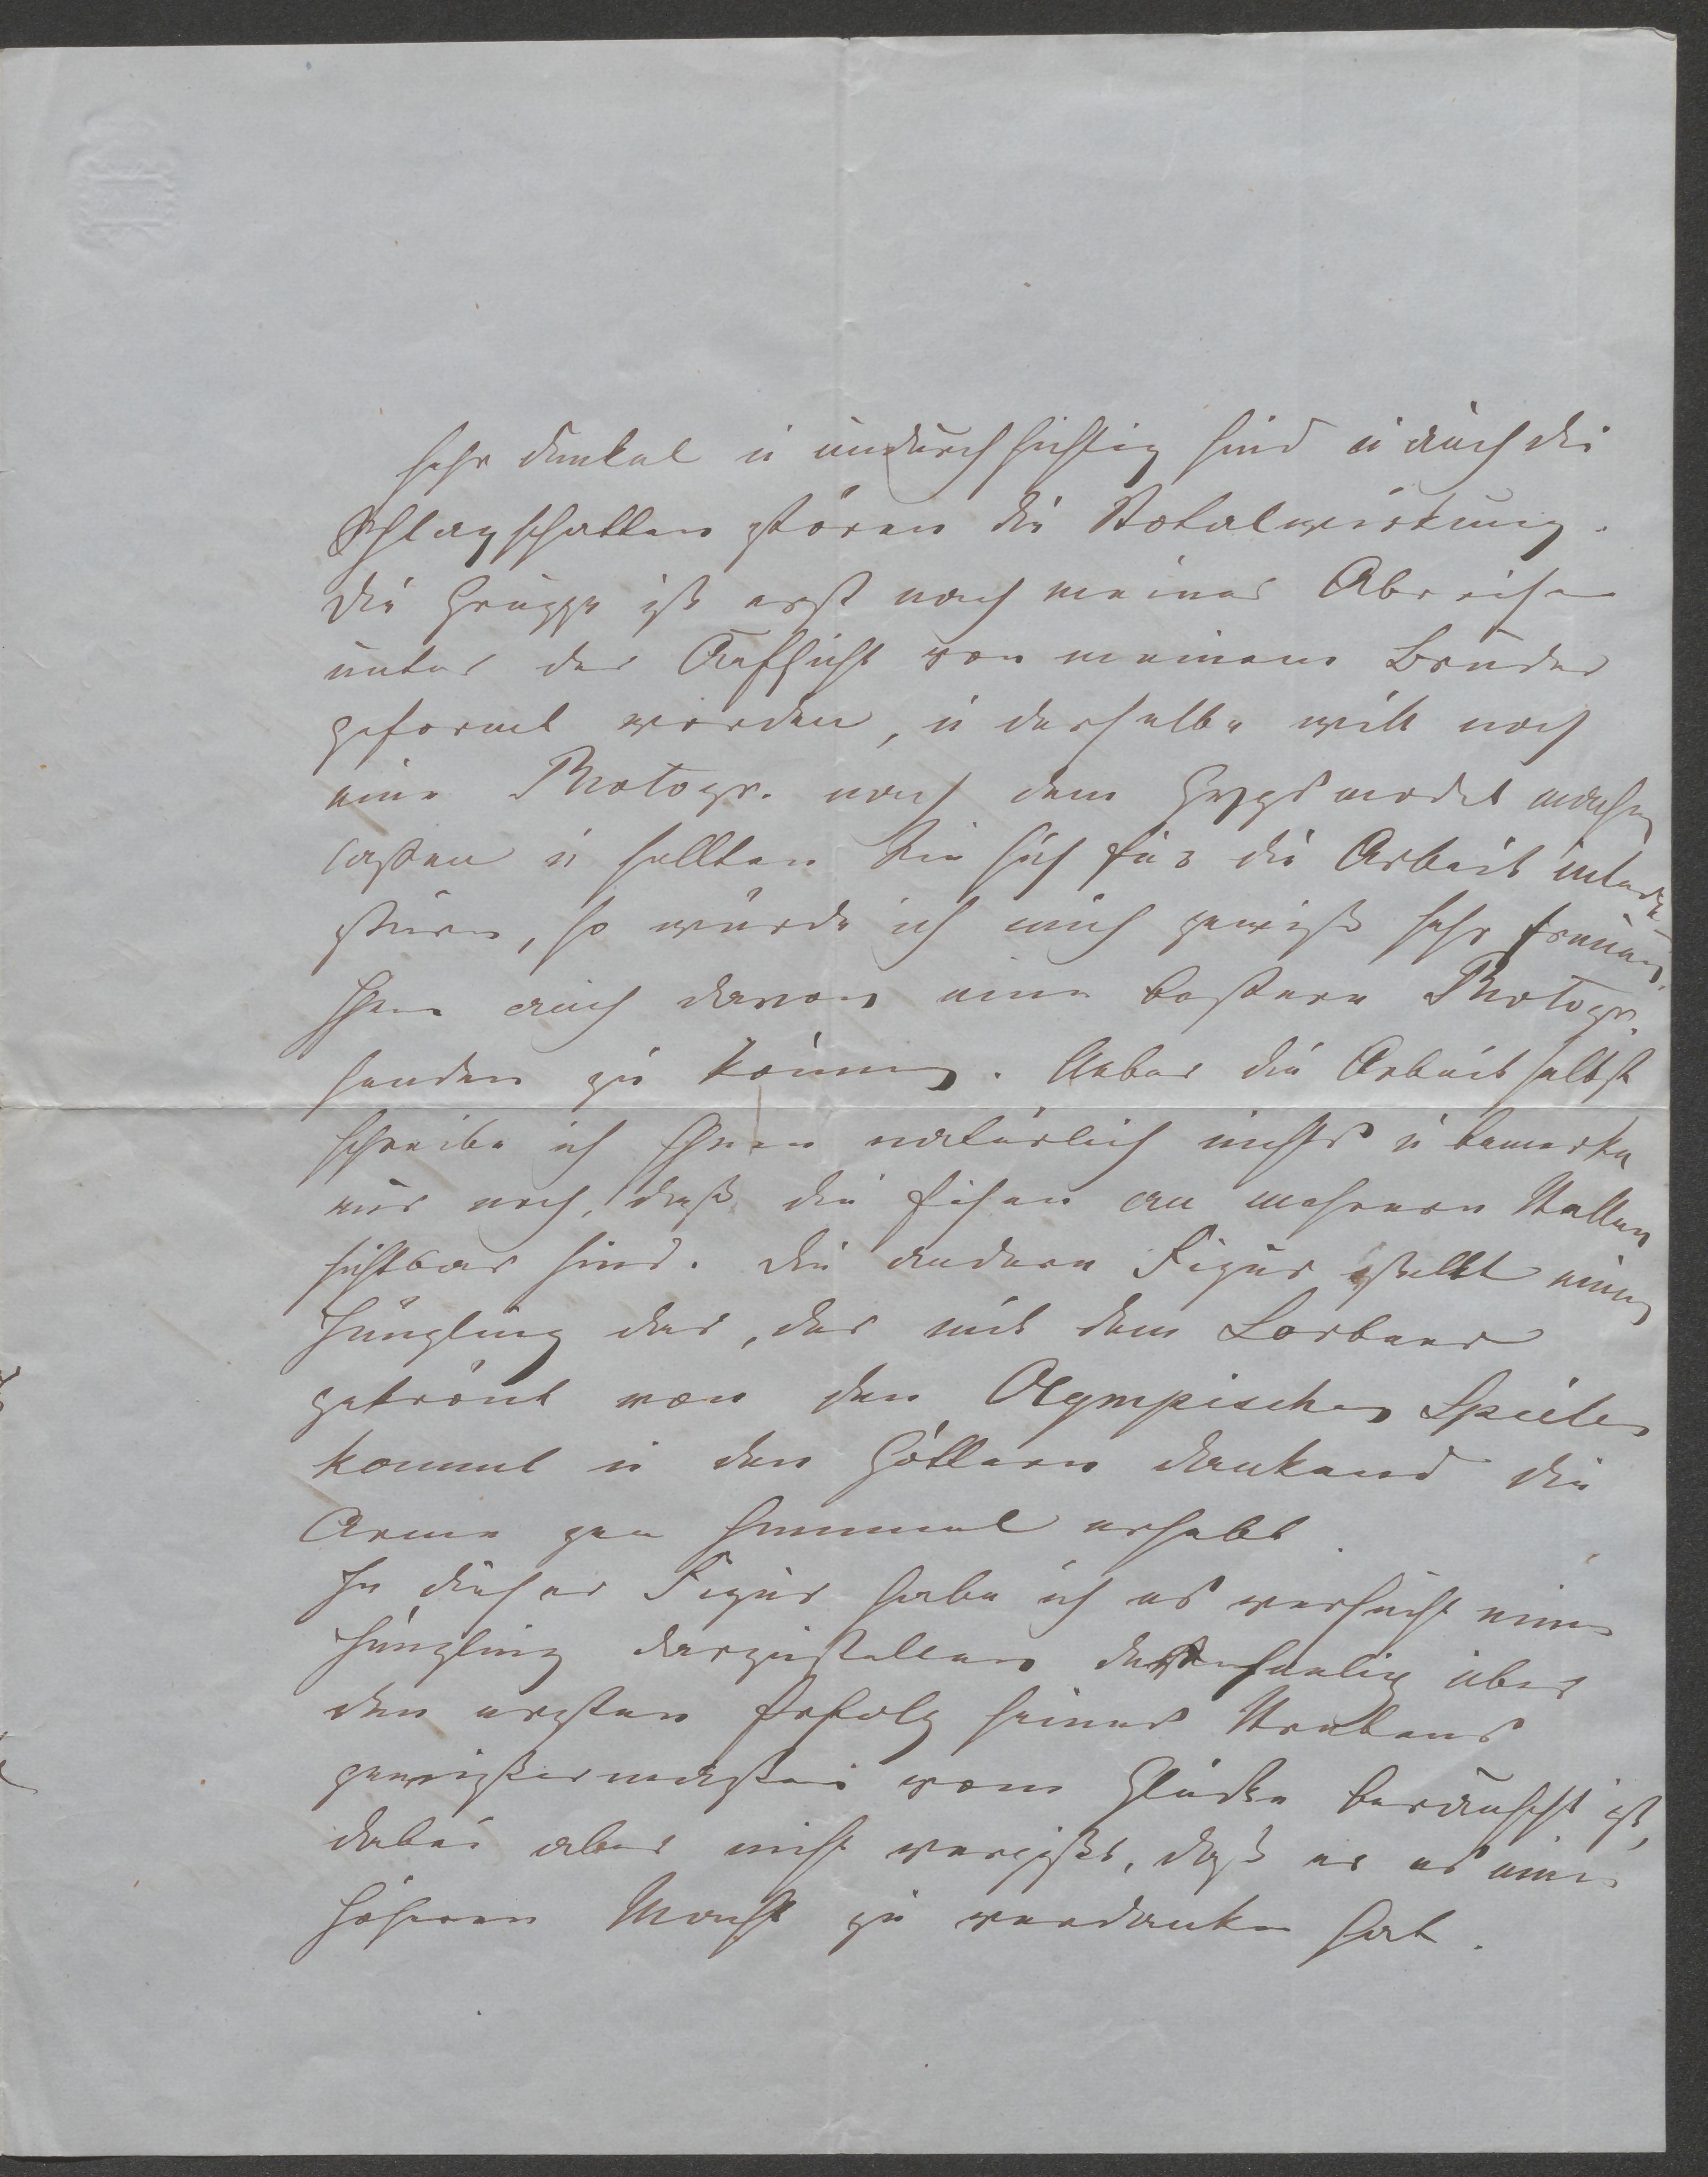 sehr dunkel u undurchsichtig sind u auch die
Schlagschatten stören die Totalwirkung.
Die Gruppe ist erst nach meiner Abreise
unter der Aufsicht von meinem Bruder
geformt worden, u derselbe will noch
eine Photogr. nach dem Gypsmodel machen
lassen u sollten Sie sich für die Arbeit interes-
siren, so würde ich mich gewiß sehr freuen,
Ihnen auch davon eine bessere Photogr.
senden zu können. Ueber die Arbeit selbst
schreibe ich Ihnen natürlich nichts u bemerke
nur noch, daß die an mehrern Stellen
sichtbar sind. Die andere Figur stellt einen
Jüngling dar, der mit dem Lorbeer
gekrönt von den Olympischen Spielen
kommt u den Göttern dankend die
Arme gen Himmel erhebt.
In dieser Figur habe ich es versucht einen
Jüngling darzustellen der seelig über
den ersten Erfolg seines Strebens
gewissermassen vom Glücke berauscht ist,
dabei aber nicht vergißt, daß er es einer
höheren Macht zu verdanken hat.